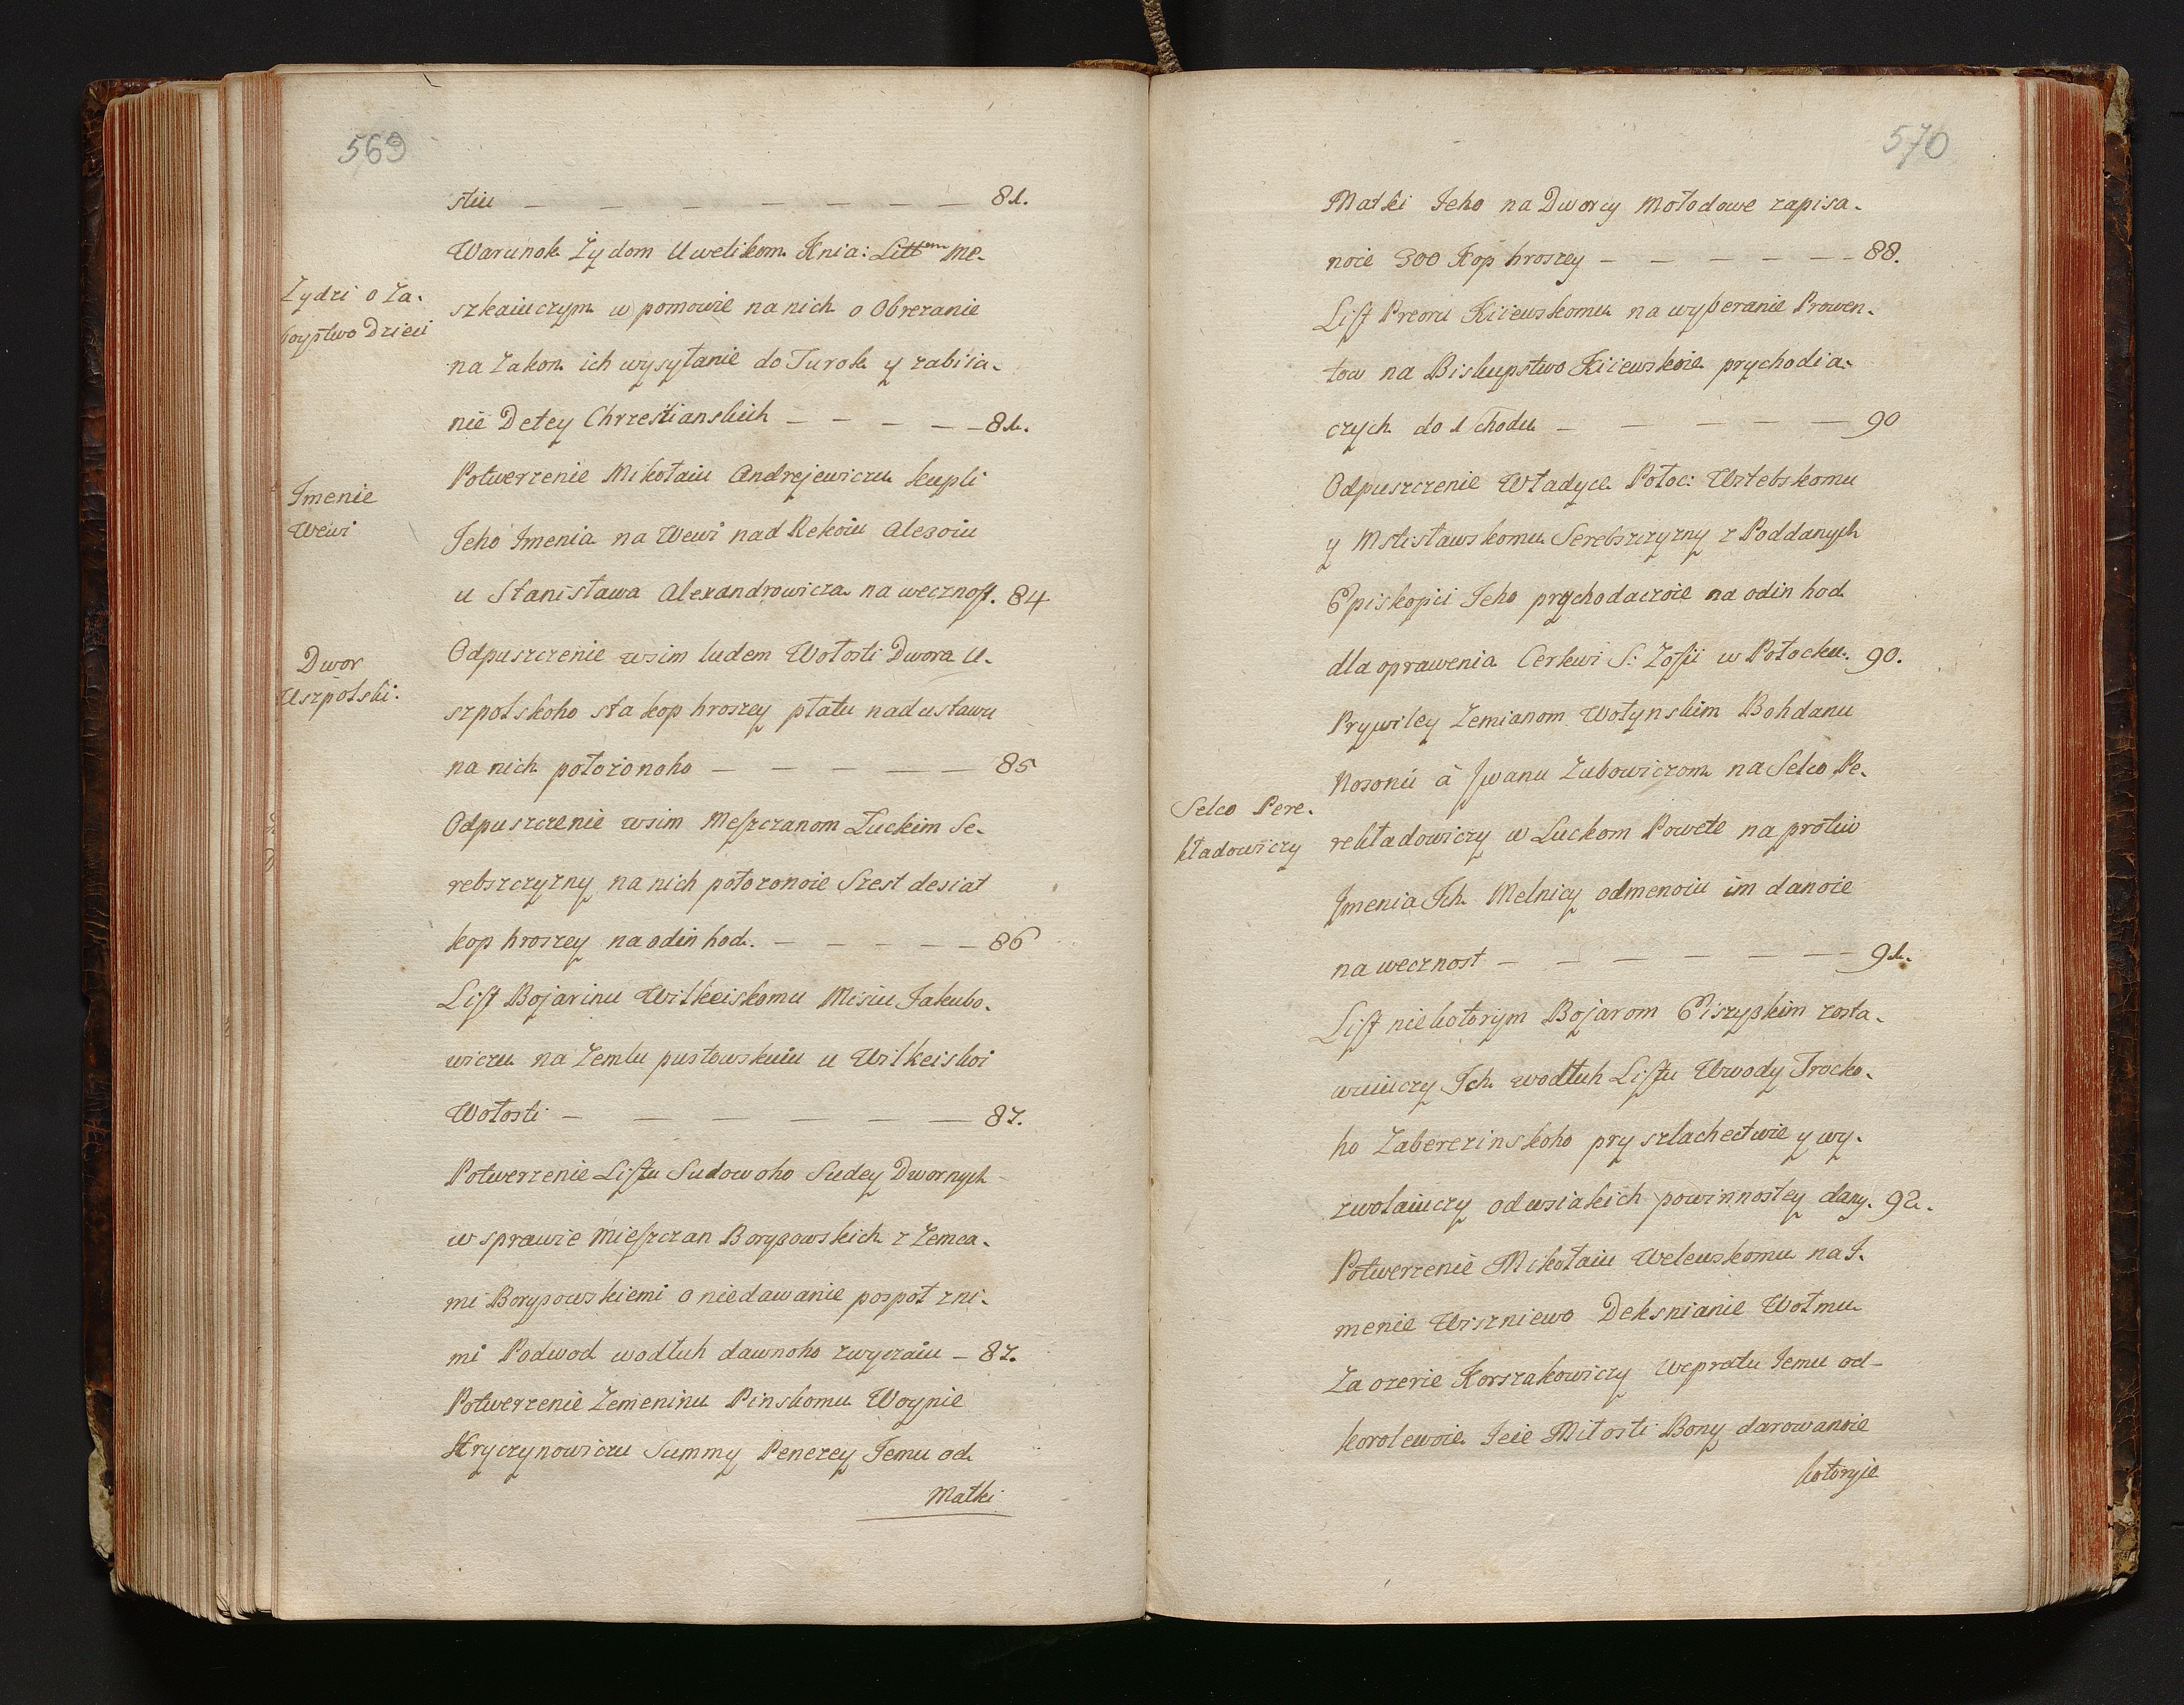 569
stiu — — — — — — 81.
Warunok Żydom Uwelikom Knia: Littem me-
Zydzi o Za-
boystwo Dzieci
szkaiuczym w pomowie na nich o Obrezanie
na Zakon ich wysyłanie do Turok y zabiia-
nie Detey Chrzestianskich — — — — 81.
Potwerzenie Mikołaiu Andrejewiczu kupli
Imenie
Wewi
Jeho Imenia na Wewi nad Rekoiu Alesoiu
u Stanisława Alexandrowicza na wecznost. 84
Odpuszczenie wsim ludem Wołosti Dwora U-
Dwor
Uszpolski.
szpolskoho sta kop hroszey płatu nad ustawu
na nich położonoho — — — — — 85
Odpuszczenie wsim Meszczanom Łuckim Se-
rebszczyzny na nich położonoie Szest desiat
kop hroszey na odin hod. — — — — — 86
List Bojarinu Wilkeiskomu Misiu Jakubo-
wiczu na Zemlu pustowskuiu u Wilkeiskoi
Wołosti — — — — — — 87.
Potwerzenie Listu Sudowoho Sudey Dwornych
w sprawie Mieszczan Borysowskich z Zemea-
mi Borysowskiemi o niedawanie pospoł z ni-
mi Podwod wodłuh dawnoho zwyczaiu — 87.
Potwerzenie Zemeninu Pinskomu Woynie
Hryczynowiczu Summy Penezey Jemu od
Matki
570
Matki Jeho na Dworcy Mołodowe zapisa-
noie 300 Kop hroszey — — — — — 88.
List Preoru Kiiewskomu na wyberanie Prowen-
tow na Biskupstwo Kiiewskoie prychodia-
czych do 1 chodu — — — — — 90
Odpuszczenie Władyce Połoc: Witebskomu
y Mstisławskomu Serebszczyzny z Poddanych
Episkopii Jeho prychodaczoie na odin hod
dla oprawenia Cerkwi S: Zofii w Połocku. 90.
Prywiley Zemianom Wołynskim Bohdanu
Nosonu á Iwanu Zubowiczom na Selco Pe-
Selco Pere-
kładowiczy
rekładowiczy w Łuckom Powete na protiw
Imenia Ich Melnicy odmenoiu im danoie
na wecznost — — — — — — 91.
List niekotorym Bojarom Eiszyskim zosta-
wuiuczy Ich wodłuh Listu Wwody Trocko-
ho Zaberezinskoho pry szlachectwie y wy-
zwolaiuczy od wsiakich powinnostey dany. 92.
Potwerzenie Mikołaiu Welewskomu na I-
menie Wiszniewo Deksnianie Wołmu
Za ozerie Korszakowiczy Wepratu Jemu od
korolewoie Jeie Miłosti Bony darowanoie
kotoryie